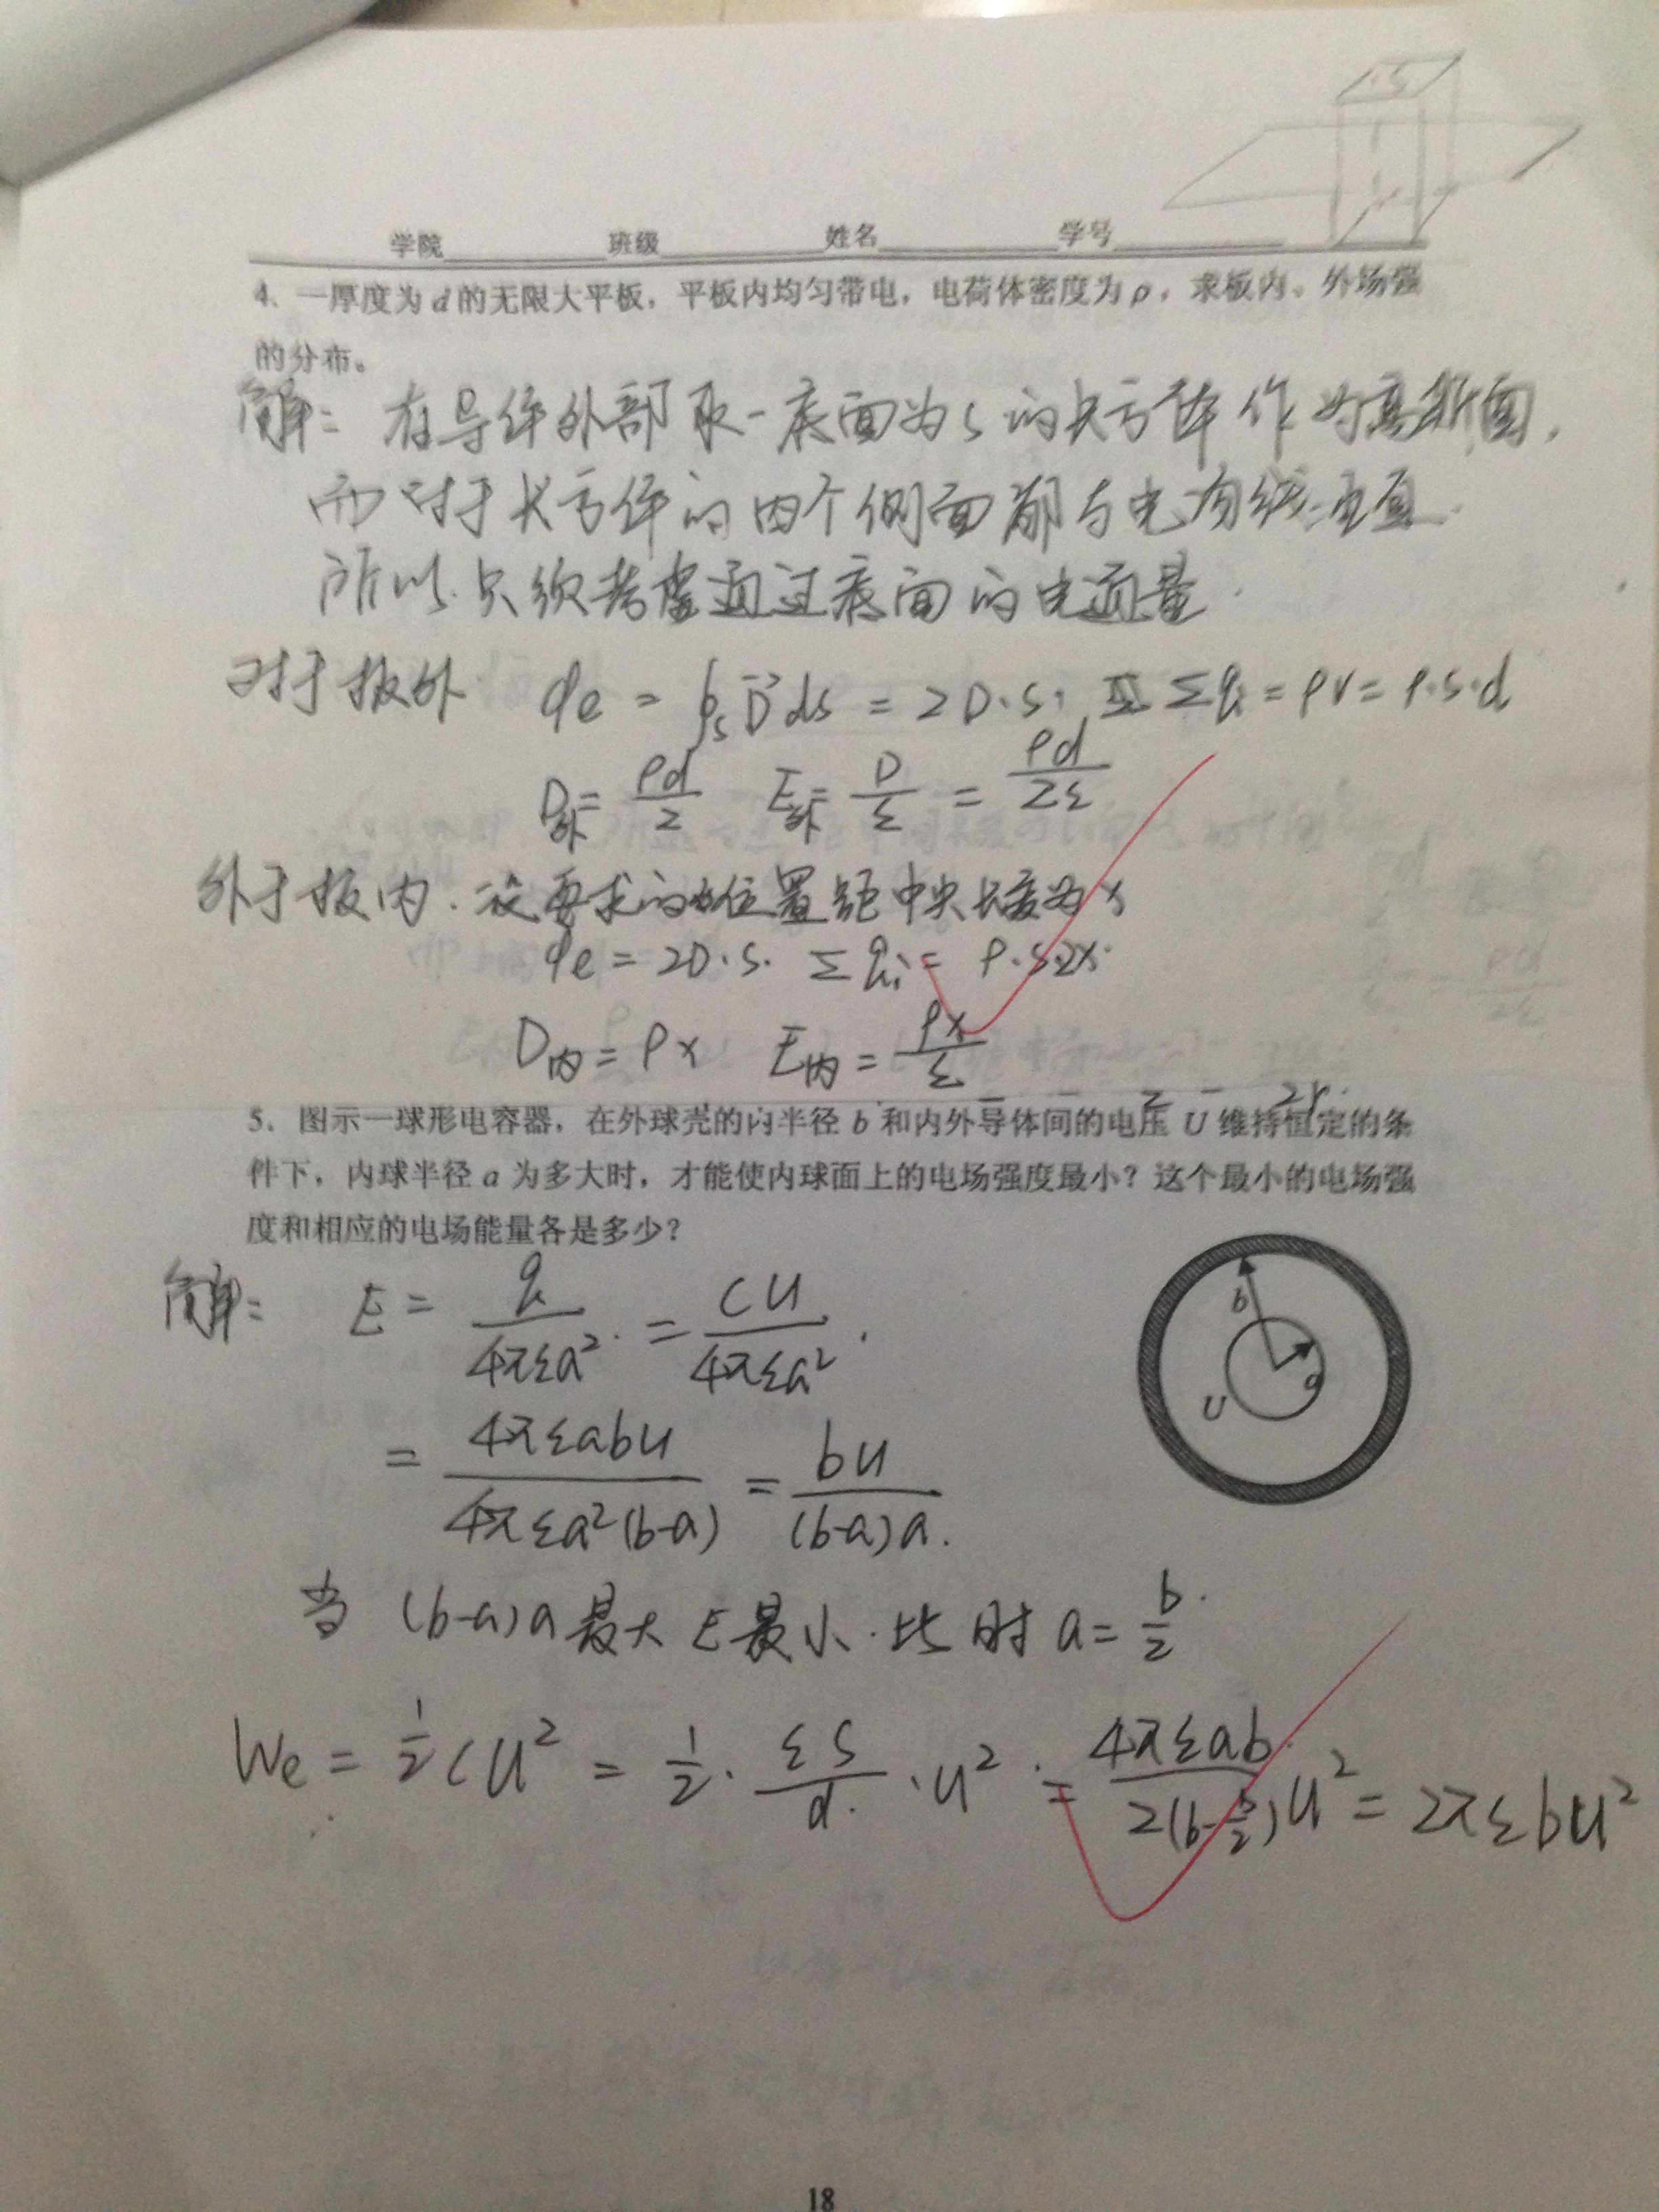 S
学院 班级 姓名 学号
4、一厚度为 d 的无限大平板，平板内均匀带电，电荷体密度为 ρ，求板内、外场强
的分布。
解: 在导体外部取一底面为s的长方体作为高斯面,
而对于长方体的四个侧面都与电场线垂直.
所以.只须考虑通过底面的电通量.
对于板外 φe = ∮s D⃗ ds = 2D·S· Σqi = ρV = ρ·s·d
D外 = ρd/2 E外 = D/ε = ρd/2ε
外于板内.设要求的位置距中央长度为x
φe = 2D·S. Σqi = ρ·S·2x.
D内 = ρx E内 = ρx/ε
5、图示一球形电容器，在外球壳的内半径 b 和内外导体间的电压 U 维持恒定的条
件下，内球半径 a 为多大时，才能使内球面上的电场强度最小？这个最小的电场强
度和相应的电场能量各是多少？
解: E = q/4πεa². = CU/4πεa².
= 4πεabU/4πεa²(b-a) = bU/(b-a)a.
b
a
U
当 (b-a)a最大 E最小.此时 a = b/2.
We = 1/2 CU² = 1/2 · εS/d · U² = 4πεab/2(b-b/2) U² = 2πεbU²
18